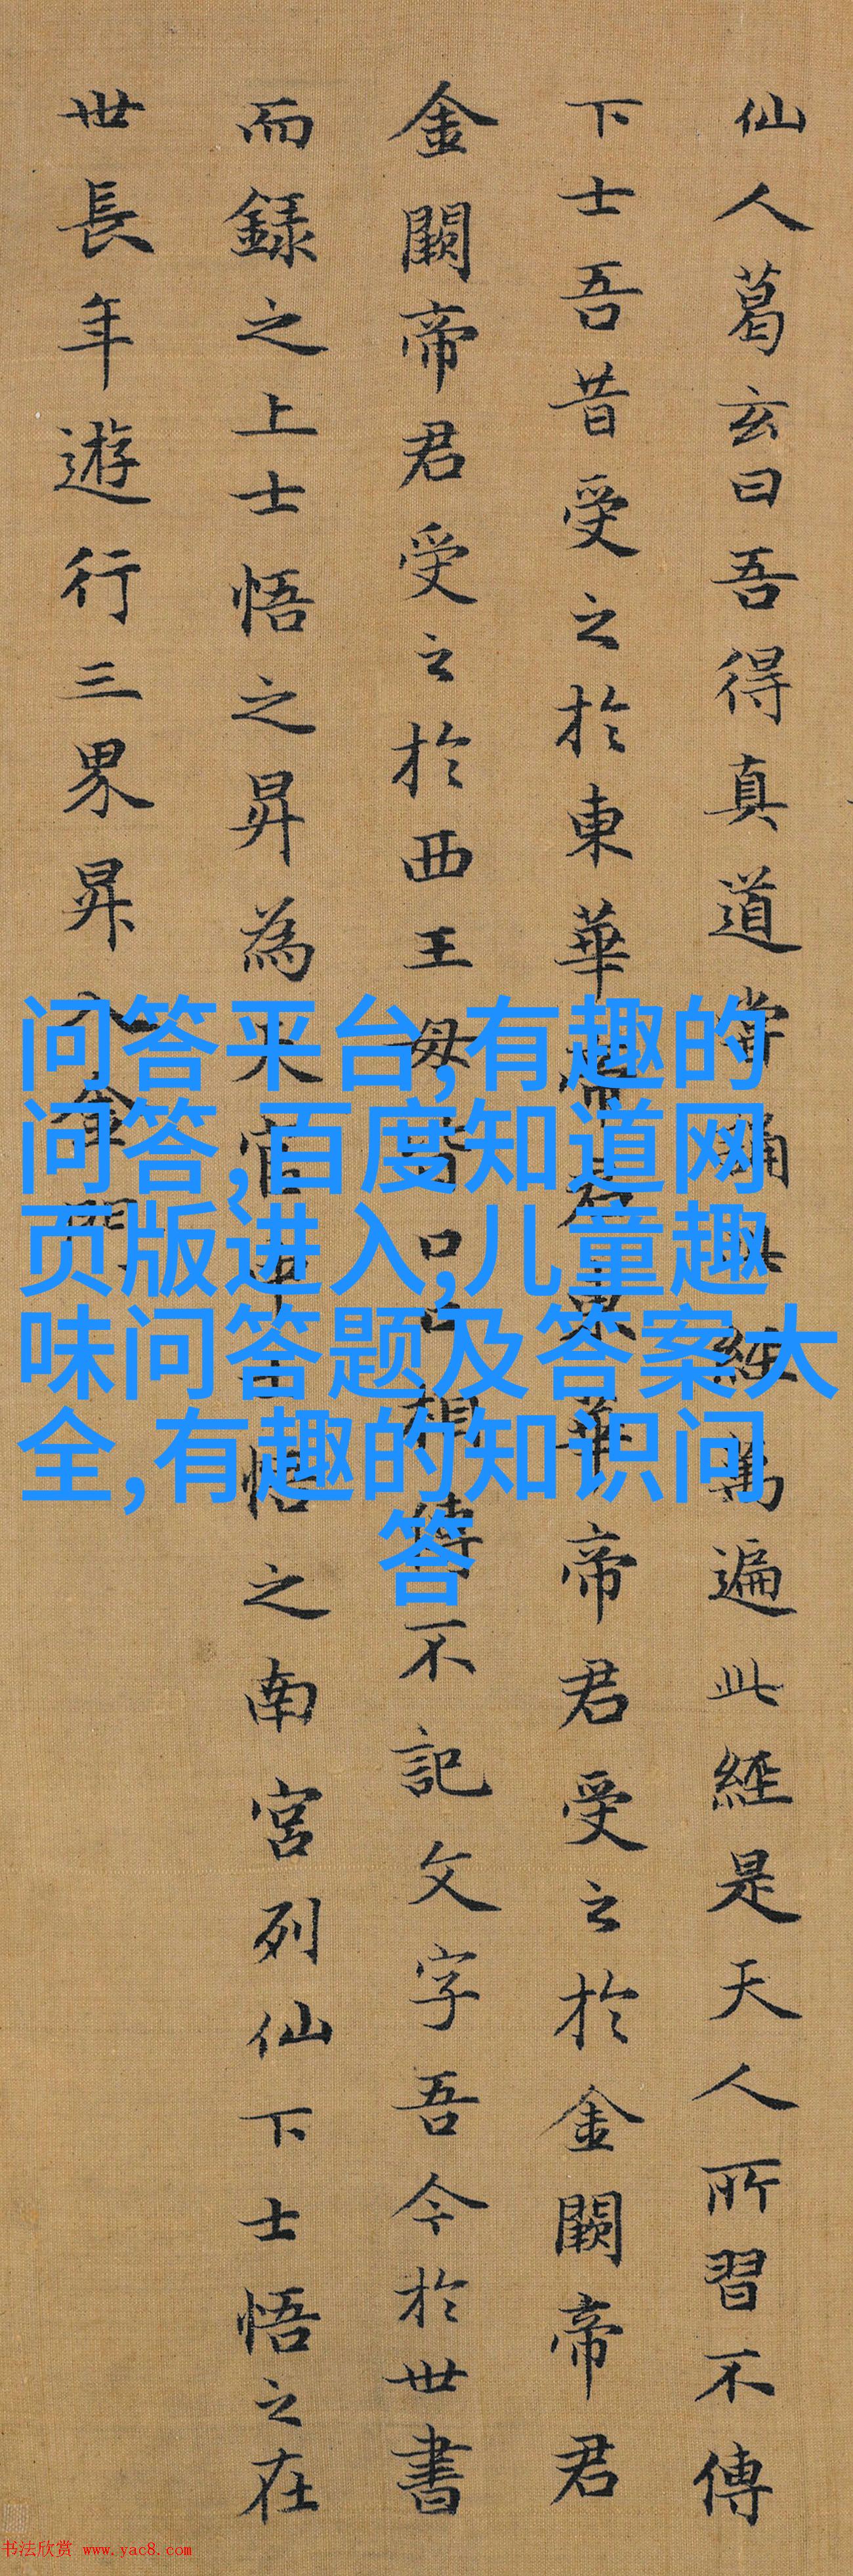 仙人葛玄曰吾得真道當誦此經萬遍此經是天人所習不傳
下士吾昔受之於東華帝君東華帝君受之於金闕帝君
金闕帝君受之於西王母皆口口相傳不記文字吾今於世書
而録之上士悟之昇為天官中士悟之南宮列仙下士悟之在
世長年遊行三界昇入金門
问答平台,有趣的
问答,百度知道网
页版进入,儿童趣
味问答题及答案大
全,有趣的知识问
答
书法欣赏 www.yac8.com